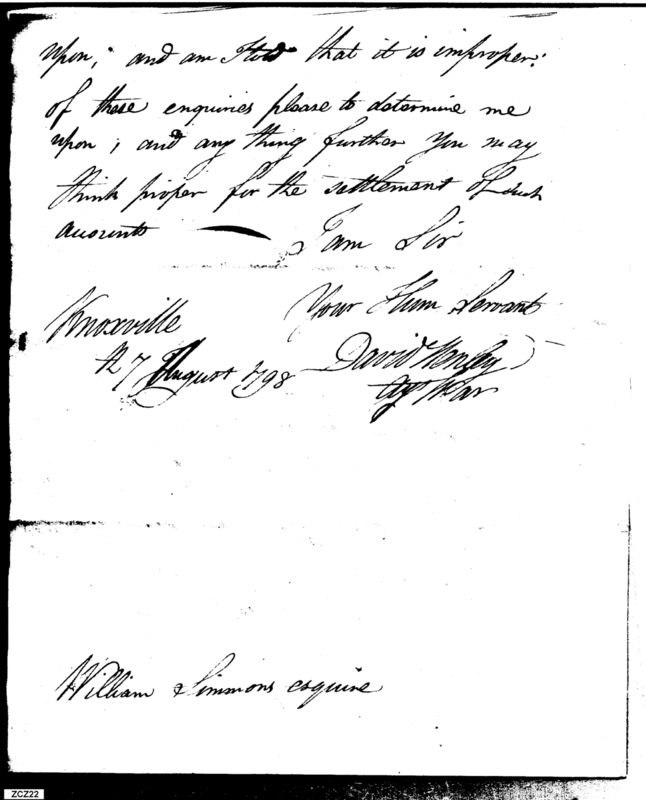 upon; and am I told that it is improper:
of these enquiries please to determine me
upon; and any thing further You may
think proper for the settlement of such
accounts —
I am Sir
Your Hum Servant
Knoxville
27 August 1798
David Henley
Agt War
William Simmons esquire
ZCZ22